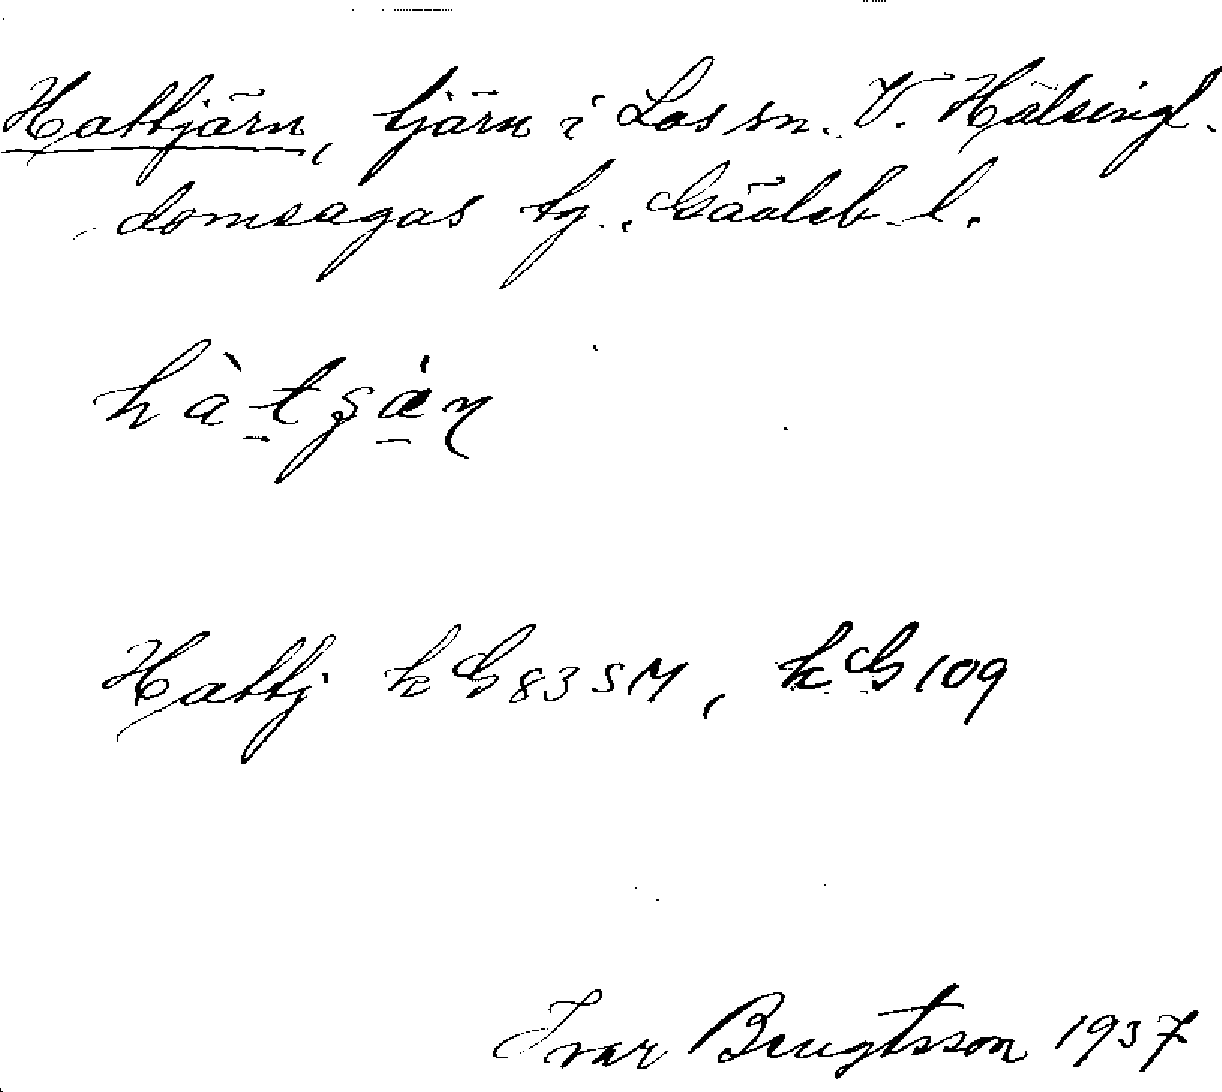 Hattjärn, tjärn i Los sn. V. Hälsingl.
domsagas tg. Gävleb. l.
hàtʂä́ɳ
Hattj kG 83 SM, kG 109
Ivar Bengtsson 1937